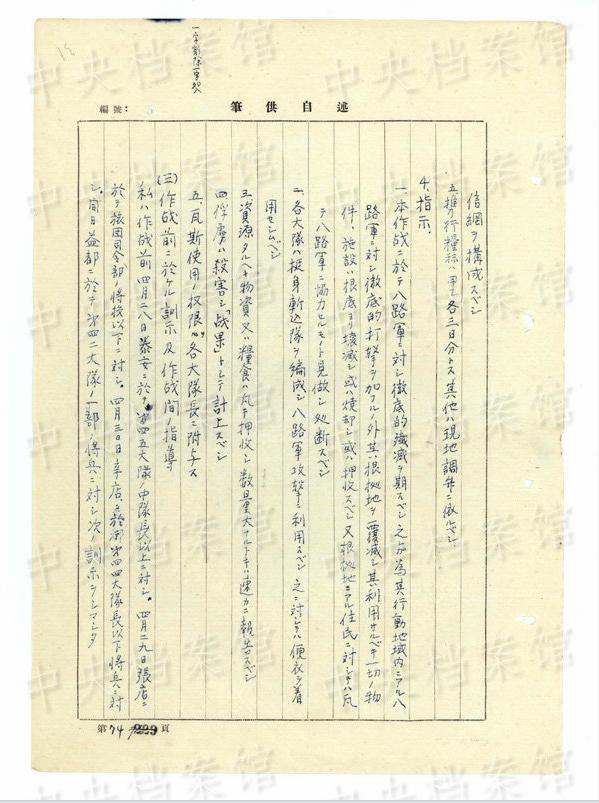 一字削除一字加入
編號：
述自供筆
信網ヲ構成スベシ
五、携行糧秣ハ各三日分トス其他ハ現地調弁ニ依ルベシ
4、指示、
一、本作戦ニ於テハ八路軍ニ対シ徹底的殲滅ヲ期スベシ 之ガ為其行動地域内ニアル八
路軍ニ対シ徹底的打撃ヲ加フル外其根拠地ヲ覆滅シ其利用サルベキ一切ノ物
件、施設ハ根底ヨリ壊滅シ或ハ焼却シ或ハ押収スベシ 又根拠地ニアル住民ニ対シテハ凡
テ八路軍ニ協力セルモノト見做シ処断スベシ
二、各大隊ハ挺身斬込隊ヲ編成シ八路軍攻撃ニ利用スベシ 之ニ対シテハ便衣ヲ着
用センムベシ
三、資源タルベキ物資又ハ糧食ハ凡テ押収シ数量大ナルトキハ速カニ報告スベシ
四、俘虜ハ殺害シ「战果」トシテ計上スベシ
五、瓦斯使用ノ权限ハ各大隊長ニ附与ス
(三)作战前ニ於ケル訓示及作战间ノ指導
私ハ作战前四月二八日泰安ニ於テ第四五大隊ノ中隊長以上ニ対シ。四月二九日張店ニ
於テ旅団司令部ノ将校以下ニ対シ。四月三〇日辛店ニ於テ第四四大隊長以下将兵ニ対
シ、同日益都ニ於テ第四二大隊ノ一部ノ将兵ニ対シ次ノ訓示ヲシマシタ
第74頁
中央档案馆